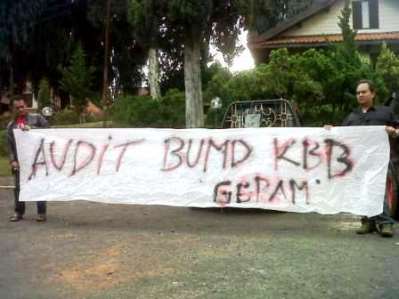 AUDiT BUMD KBB
GEPAM